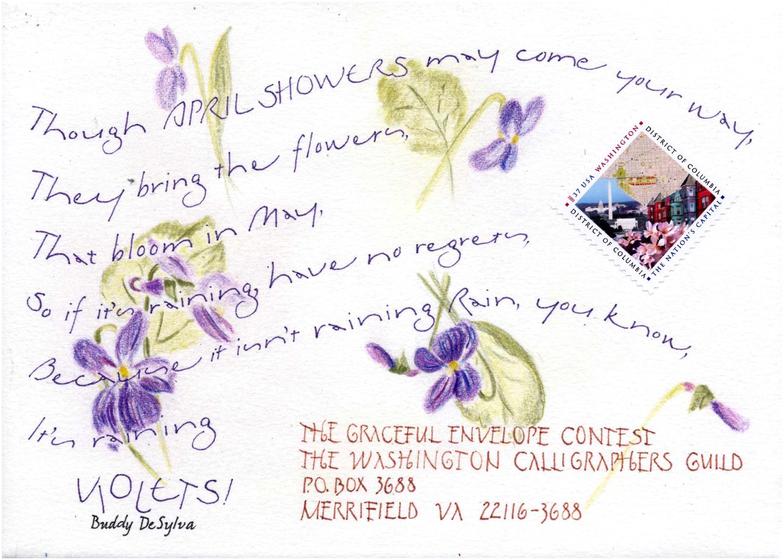 Though APRIL SHOWERS may come your way,
They bring the flowers,
That bloom in May,
So if it's raining, have no regrets,
Because it isn't raining Rain, you know,
It's raining
VIOLETS!
Buddy DeSylva
37 USA WASHINGTON DISTRICT OF COLUMBIA
DISTRICT OF COLUMBIA THE NATION'S CAPITAL
THE GRACEFUL ENVELOPE CONTEST
THE WASHINGTON CALLIGRAPHERS GUILD
P.O. BOX 3688
MERRIFIELD VA 22116-3688